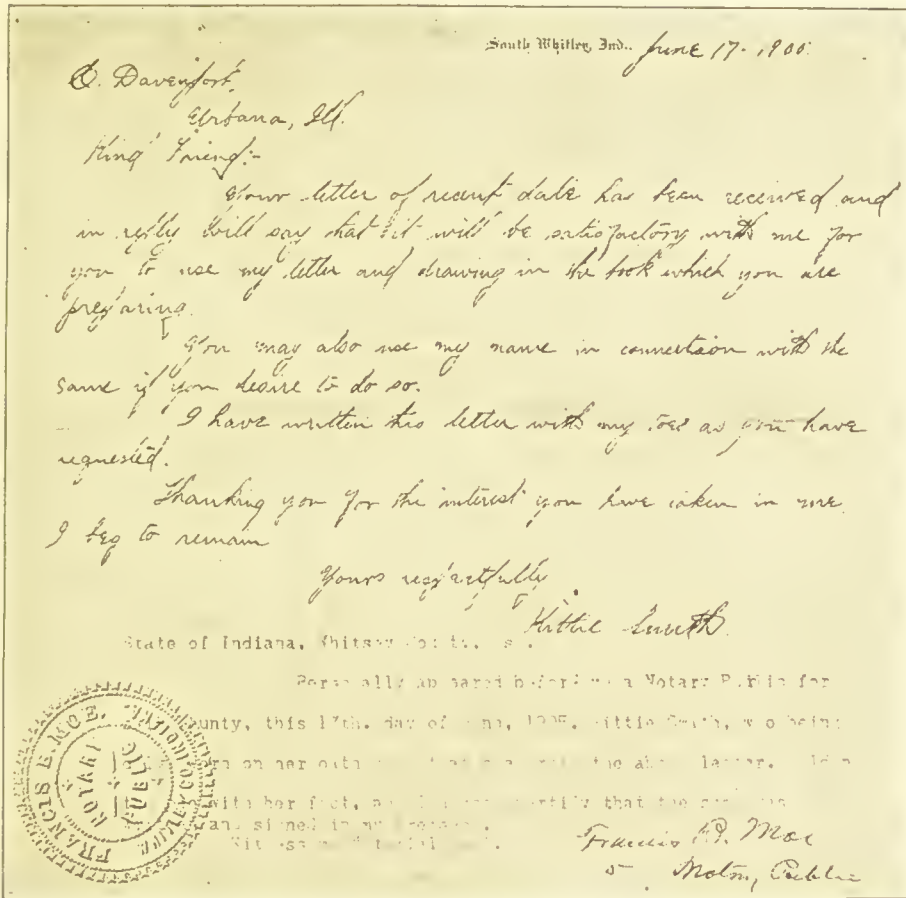 South Whitley, Ind., June 17- 190
E. Davenport,
Urbana, Ill.
Kind Friend:-
Your letter of recent date has been received and
in reply will say that it will be satisfactory with me for
you to use my letter and drawing in the book which you are
preparing.
You may also use my name in connection with the
same if you desire to do so.
I have written this letter with my toes as you have
requested.
Thanking you for the interest you have taken in me
I beg to remain
Yours respectfully
Kittie Smith.
State of Indiana, Whitley
Personally appeared before me a Notary Public for
County, this 17th. day of Kittie Smith, who being
on her oath the above letter.
with her feet, certify that the
and signed in my presence.
Witness
Francis E. Moe
Notary Public
FRANCIS E. MOE.
NOTARY
PUBLIC